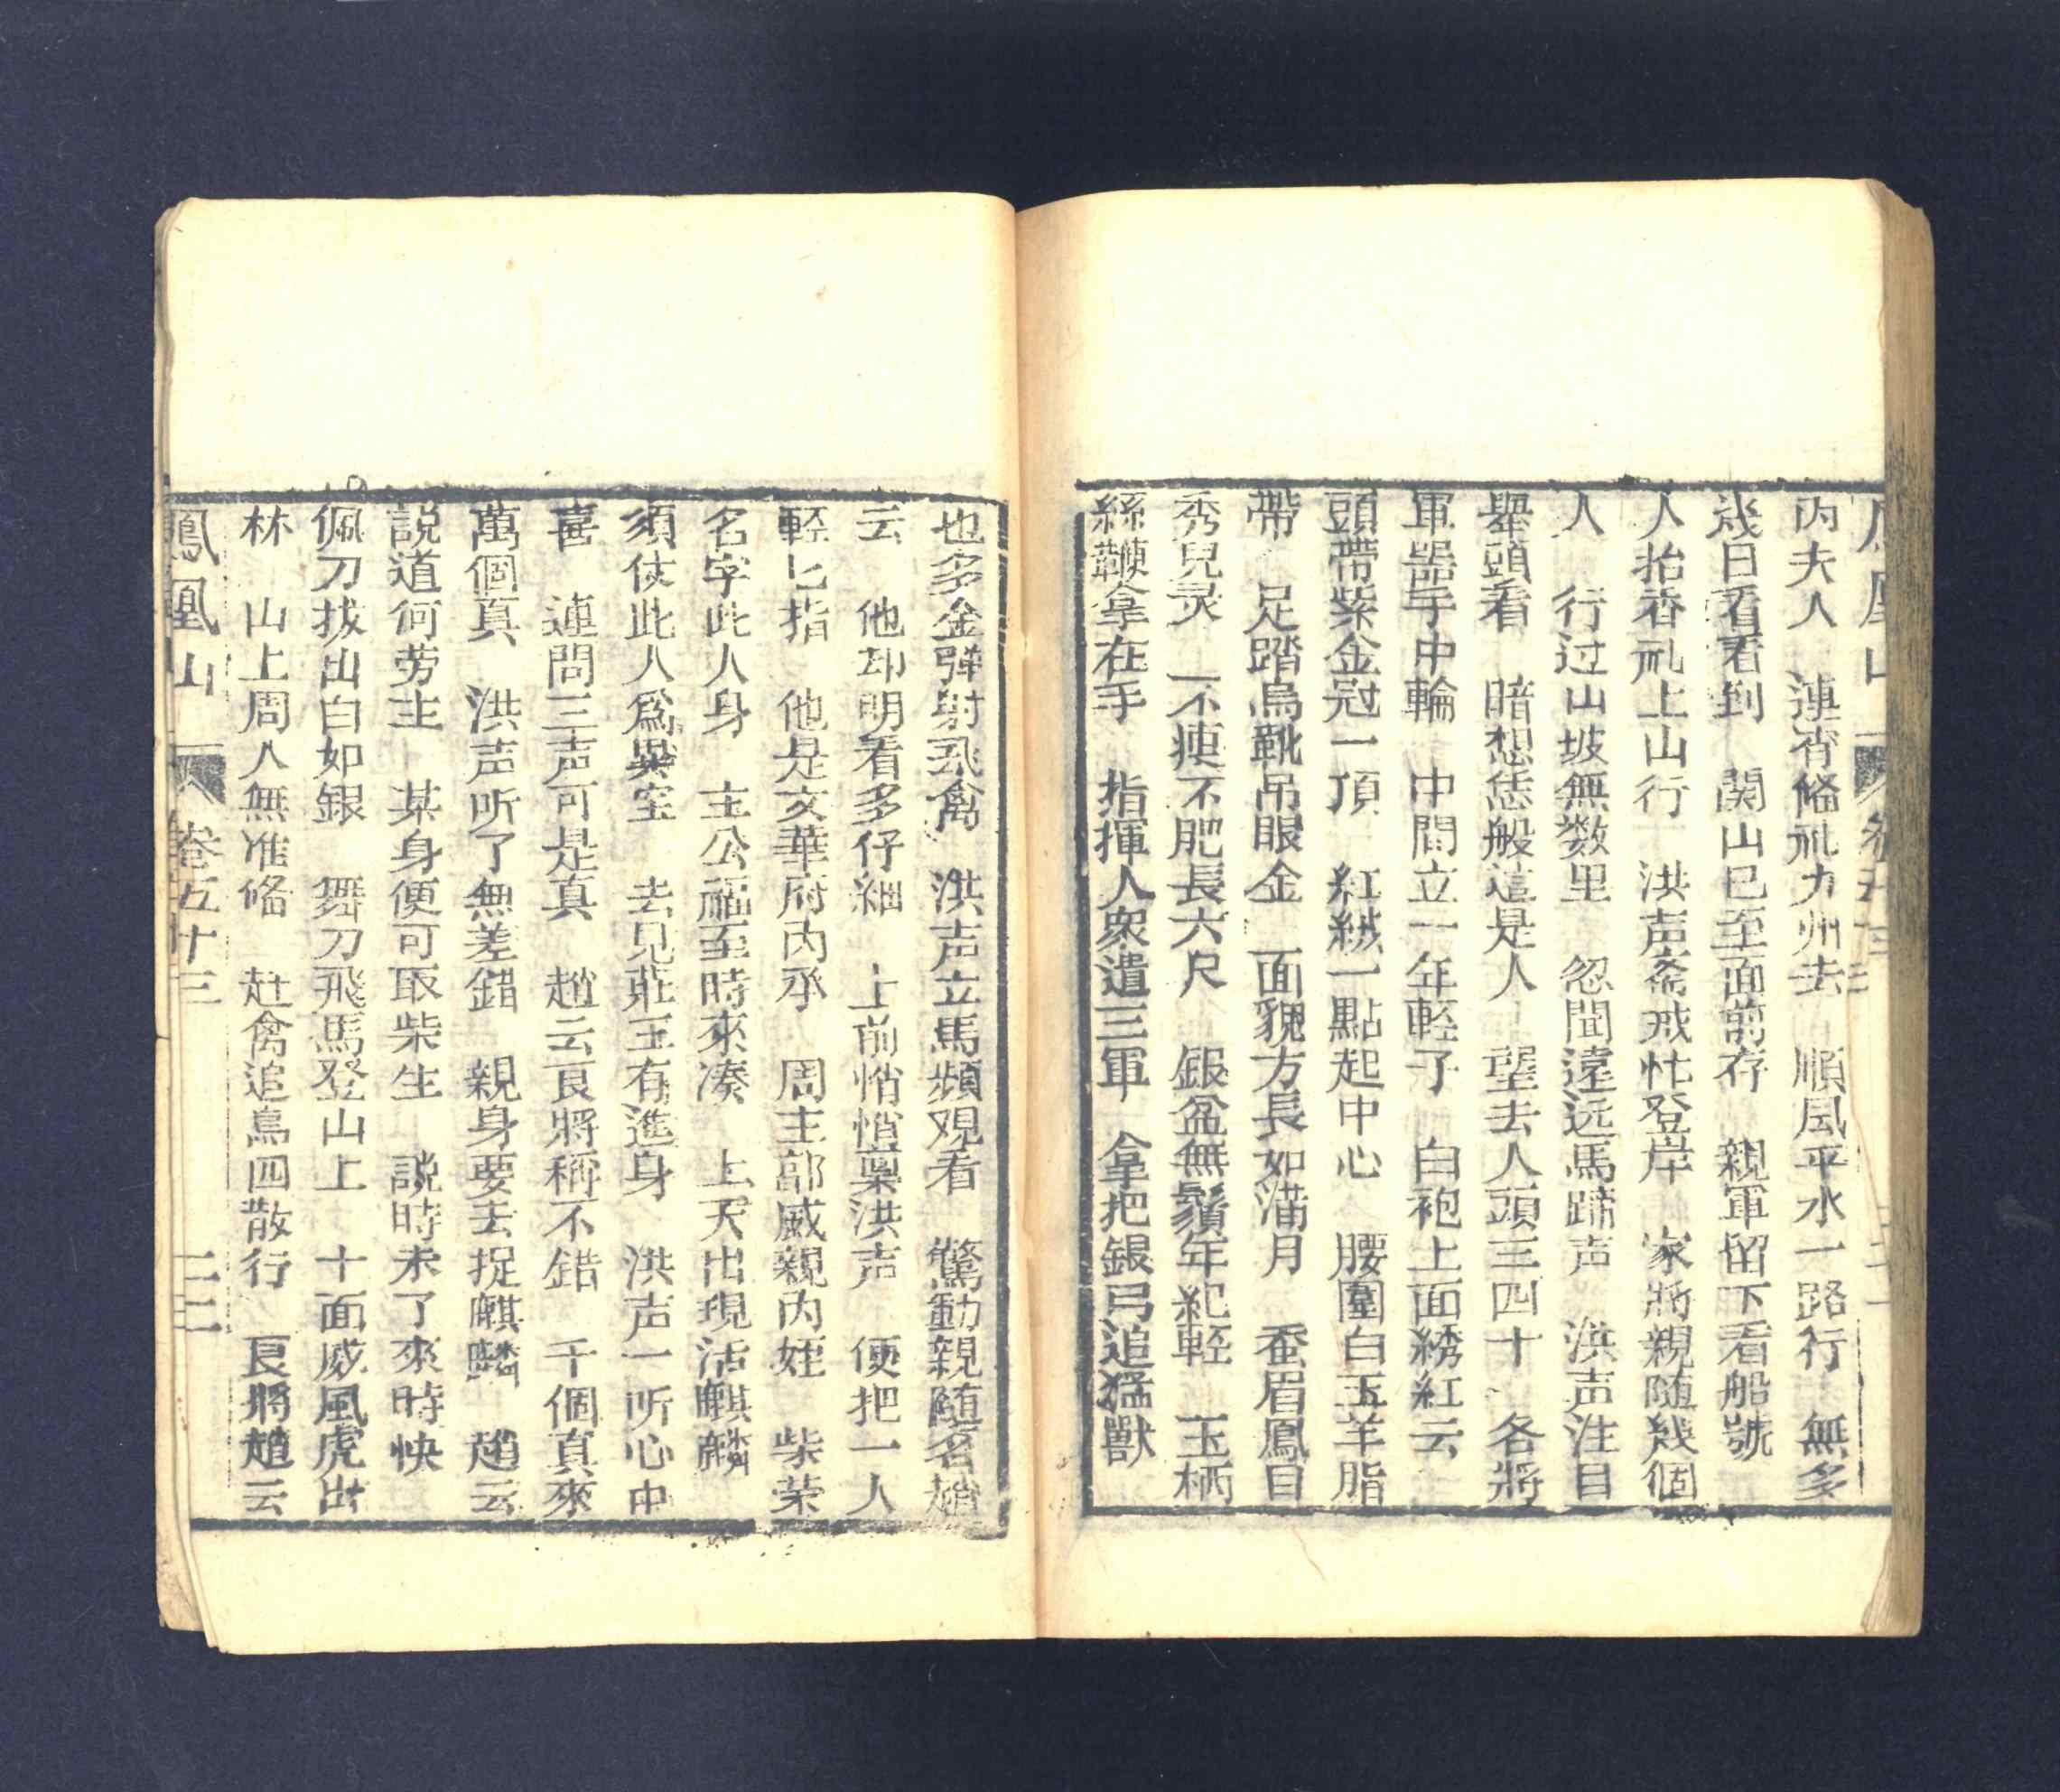 内夫人　連宵俻礼九州去　順風平水一路行　無多
幾日看看到　関山已至面前存　親軍留下看船號
人抬香礼上山行　洪声斋戒忙登岸　家將親随幾個
人　行过山坡無数里　忽聞遠远馬蹄声　洪声注目
舉頭看　暗想恁般這是人　望去人頭三四十　各將
軍噐手中輪　中間立一年輕子　白袍上面綉紅云
頭帶紫金冠一頂　紅絨一點起中心　腰圍白玉羊脂
帶　足踏烏靴吊眼金　面貌方長如滿月　蚕眉鳳目
秀兒灵　一不瘦不肥長六尺　銀盆無鬚年紀輕　玉柄
絲鞭拿在手　指揮人衆遣三軍　拿把銀弓追猛獸
也多金彈射飛禽　洪声立馬頻观看　驚動親随名趙
云　他却明看多仔細　上前悄悄稟洪声　便把一人
輕匕指　他是文華府内承　周主郭威親内姪　柴荣
名字此人身　主公福至時來凑　上天出現活麒麟
須仗此人爲異宝　去見莊王有進身　洪声一听心中
喜　連問三声可是真　趙云良將稱不錯　千個真來
萬個真　洪声听了無差錯　親身要去捉麒麟　趙云
説道何劳主　某身便可取柴生　説時未了來時快
佩刀拔出白如銀　舞刀飛馬登山上　十面威風虎出
林　山上周人無准俻　赶禽追鳥四散行　良將趙云
鳳凰山　卷五十三　二二